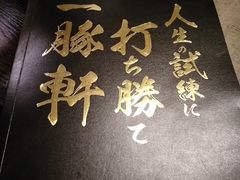 人生の試練に
打ち勝て
一豚軒